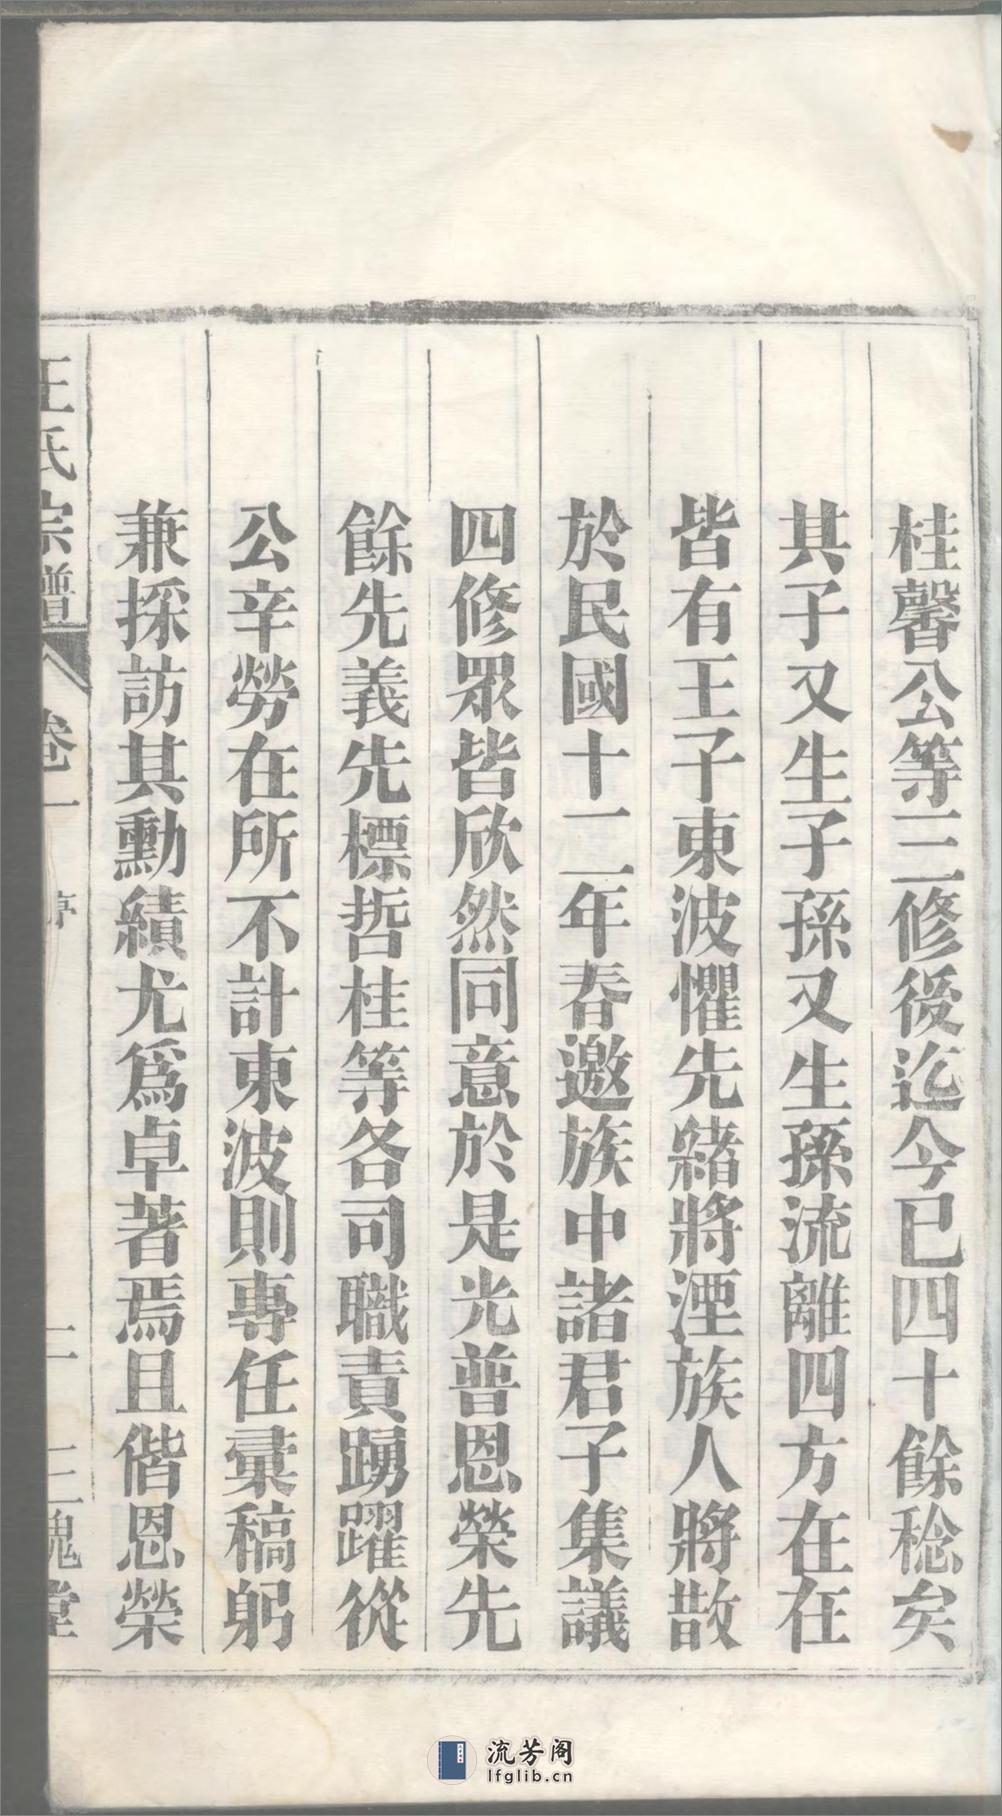 桂馨公等三修後迄今已四十餘稔矣
其子又生子孫又生孫流離四方在在
皆有王子東波懼先緒將湮族人將散
於民國十二年春邀族中諸君子集議
四修眾皆欣然同意於是光普恩榮先
餘先義先標哲桂等各司職責踴躍從
公辛勞在所不計東波則專任彙稿躬
兼採訪其勳績尤爲卓著焉且偕恩榮
王氏宗譜 卷一 序 二 三槐堂
流芳阁
lfglib.cn